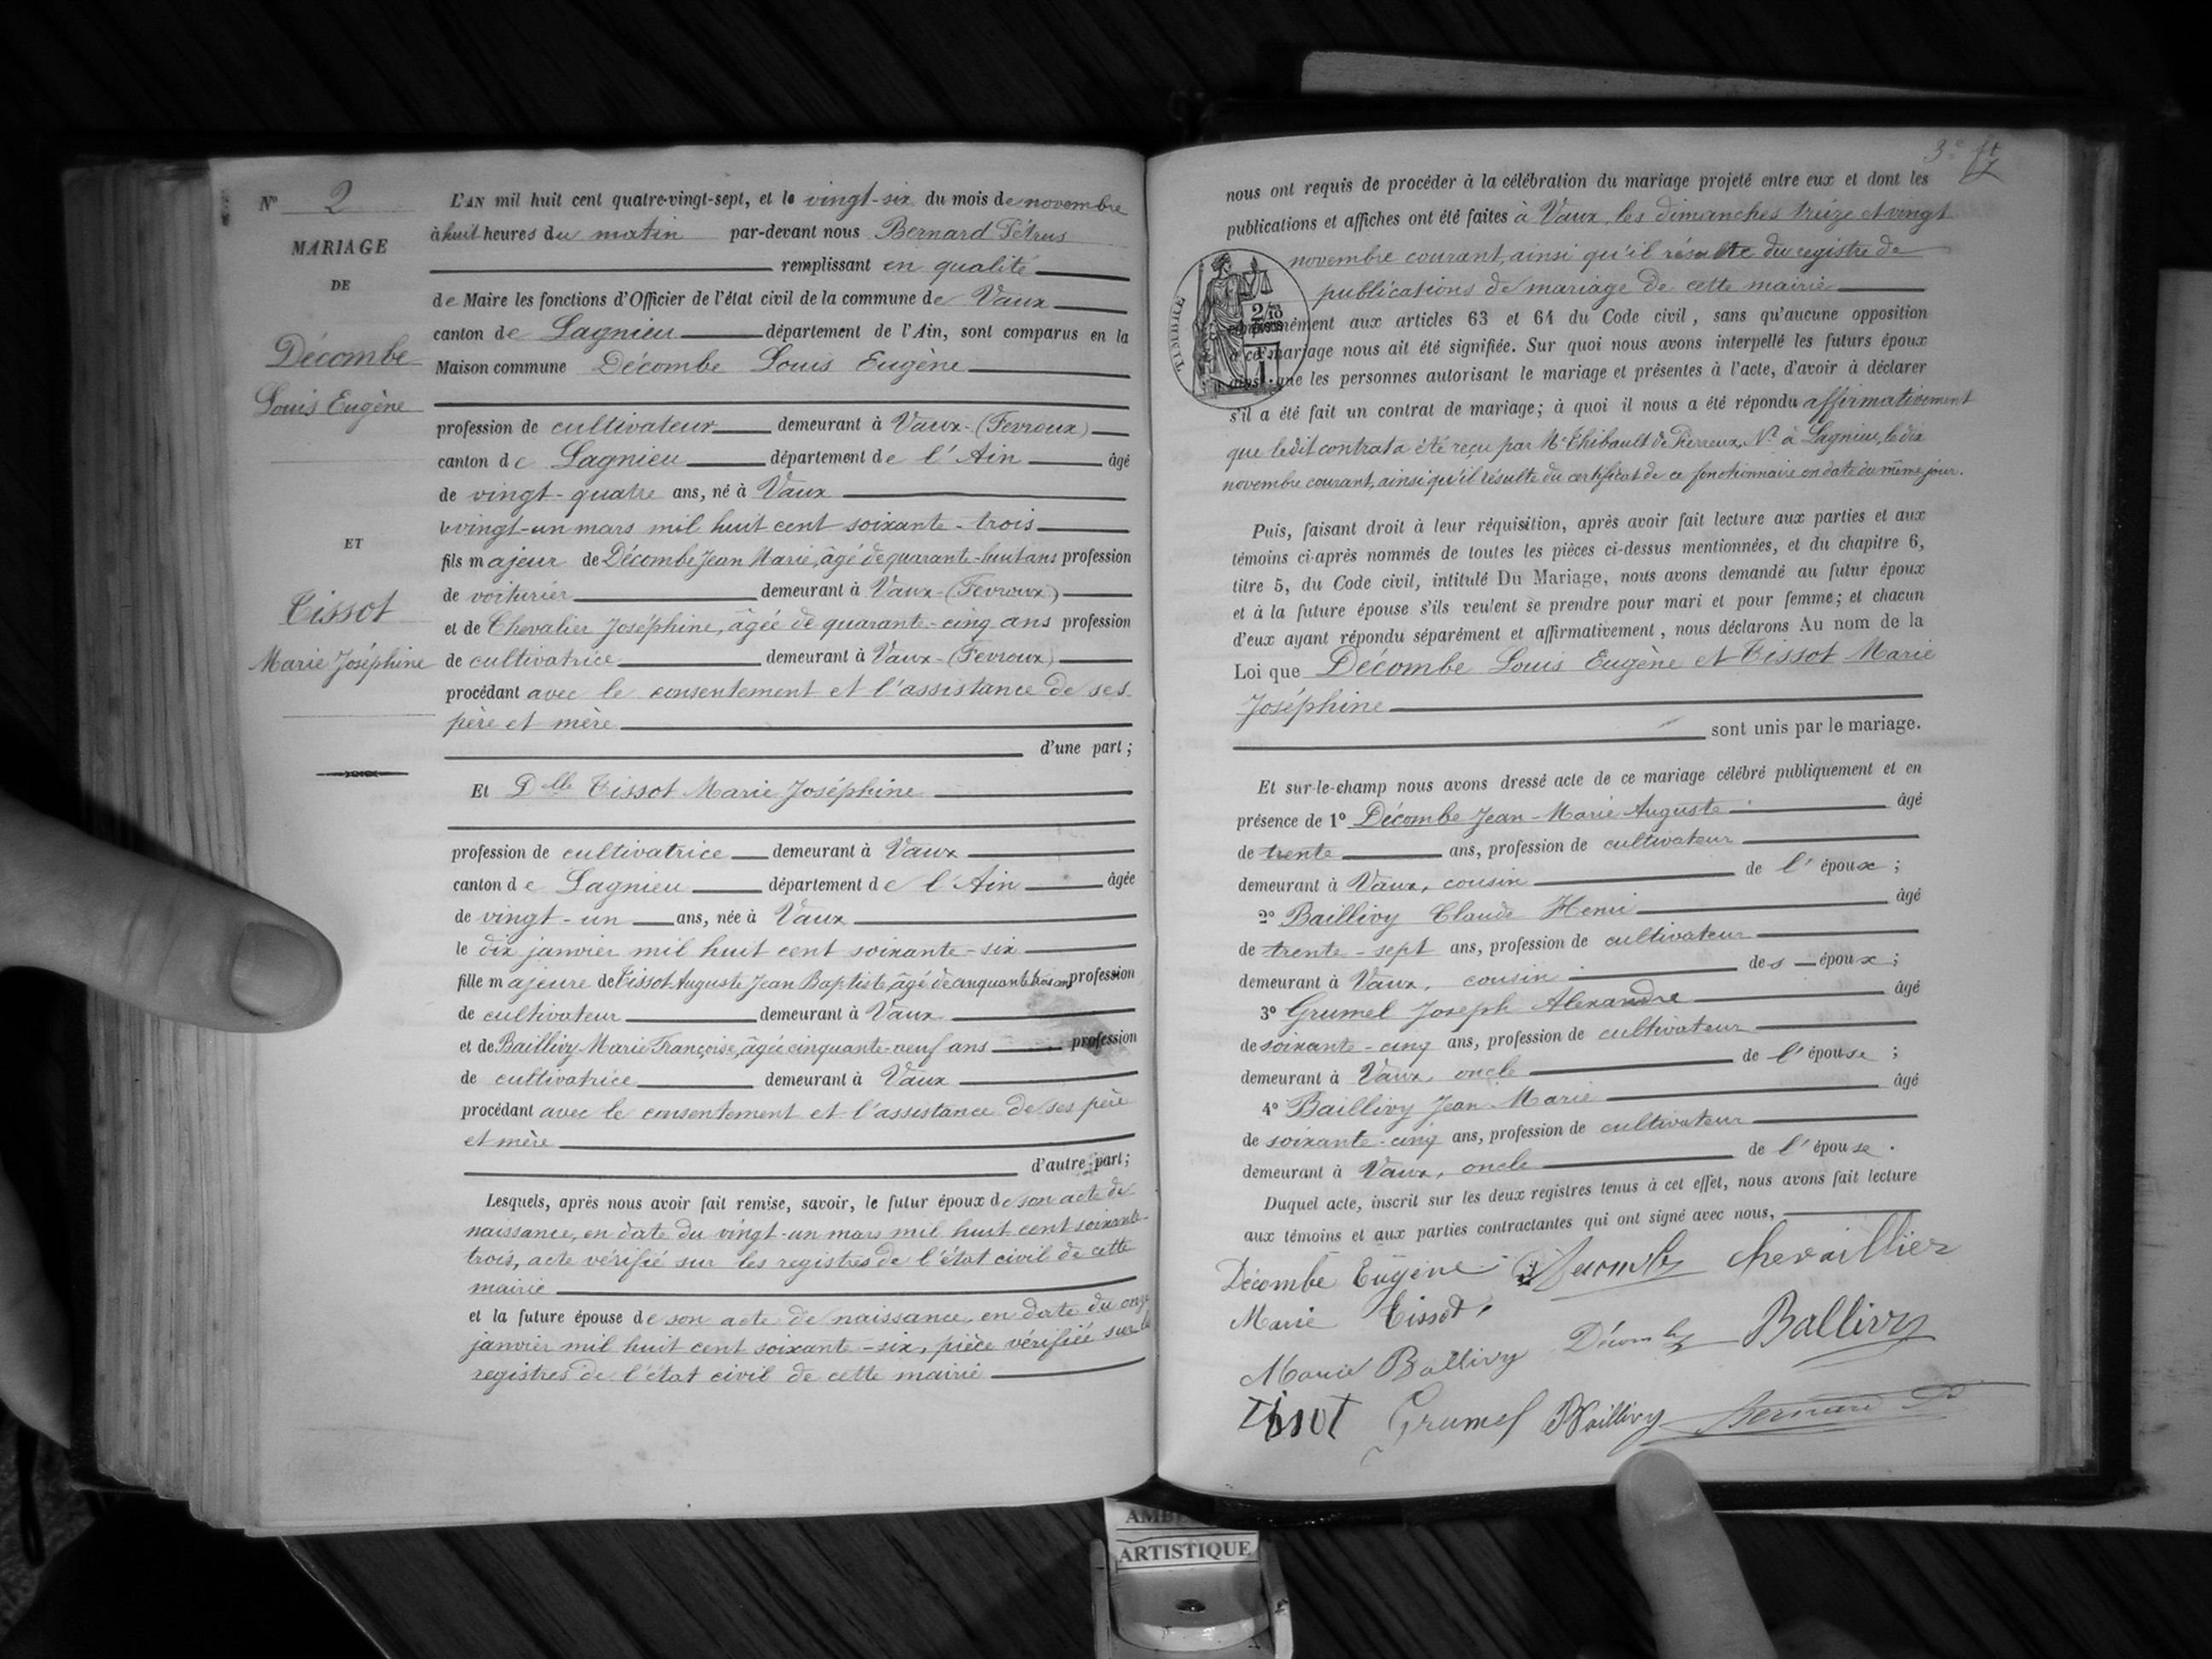 Nº 2
MARIAGE
DE
Décombe
Louis Eugène
ET
Tissot
Marie Joséphine
L'AN mil huit cent quatre-vingt-sept, et le vingt-six du mois de novembre
à huit heures du matin par-devant nous Bernard Pétrus
remplissant en qualité
de Maire les fonctions d'Officier de l'état civil de la commune de Vaux
canton de Lagnieu département de l'Ain, sont comparus en la
Maison commune Décombe Louis Eugène
profession de cultivateur demeurant à Vaux-(Fevroux)
canton de Lagnieu département de l'Ain âgé
de vingt-quatre ans, né à Vaux
le vingt-un mars mil huit cent soixante-trois
fils majeur de Décombe Jean Marie, âgé de quarante-huit ans profession
de voiturier demeurant à Vaux-(Fevroux)
et de Chevalier Joséphine, âgée de quarante-cinq ans profession
de cultivatrice demeurant à Vaux-(Fevroux)
procédant avec le consentement et l'assistance de ses
père et mère
d'une part;
Et Dlle Tissot Marie Joséphine
profession de cultivatrice demeurant à Vaux
canton de Lagnieu département de l'Ain âgée
de vingt-un ans, née à Vaux
le dix janvier mil huit cent soixante-six
fille majeure de Tissot Auguste Jean Baptiste, âgé de cinquante trois ans profession
de cultivateur demeurant à Vaux
et de Baillivy Marie Françoise, âgée cinquante-neuf ans profession
de cultivatrice demeurant à Vaux
procédant avec le consentement et l'assistance de ses père
et mère
d'autre part;
Lesquels, après nous avoir fait remise, savoir, le futur époux de son acte de
naissance, en date du vingt-un mars mil huit cent soixante-
trois, acte vérifié sur les registres de l'état civil de cette
mairie
et la future épouse de son acte de naissance, en date du onze
janvier mil huit cent soixante-six, pièce vérifiée sur les
registres de l'état civil de cette mairie
3e ft
nous ont requis de procéder à la célébration du mariage projeté entre eux et dont les
publications et affiches ont été faites à Vaux, les dimanches treize et vingt
novembre courant, ainsi qu'il résulte du registre de
publications de mariage de cette mairie
TIMBRE
2/10
conformément aux articles 63 et 64 du Code civil, sans qu'aucune opposition
à ce mariage nous ait été signifiée. Sur quoi nous avons interpellé les futurs époux
ainsi que les personnes autorisant le mariage et présentes à l'acte, d'avoir à déclarer
s'il a été fait un contrat de mariage; à quoi il nous a été répondu affirmativement
que ledit contrat a été reçu par Me Thibault de Pierreux, Nre à Lagnieu, le dix
novembre courant, ainsi qu'il résulte du certificat de ce fonctionnaire en date du même jour.
Puis, faisant droit à leur réquisition, après avoir fait lecture aux parties et aux
témoins ci-après nommés de toutes les pièces ci-dessus mentionnées, et du chapitre 6,
titre 5, du Code civil, intitulé Du Mariage, nous avons demandé au futur époux
et à la future épouse s'ils veulent se prendre pour mari et pour femme; et chacun
d'eux ayant répondu séparément et affirmativement, nous déclarons Au nom de la
Loi que Décombe Louis Eugène et Tissot Marie
Joséphine
sont unis par le mariage.
Et sur-le-champ nous avons dressé acte de ce mariage célébré publiquement et en
présence de 1º Décombe Jean-Marie Auguste âgé
de trente ans, profession de cultivateur
demeurant à Vaux, cousin de l'époux;
2º Baillivy Claude Henri âgé
de trente-sept ans, profession de cultivateur
demeurant à Vaux, cousin des époux;
3º Grumel Joseph Alexandre âgé
de soixante-cinq ans, profession de cultivateur
demeurant à Vaux, oncle de l'épouse;
4º Baillivy Jean Marie âgé
de soixante-cinq ans, profession de cultivateur
demeurant à Vaux, oncle de l'épouse.
Duquel acte, inscrit sur les deux registres tenus à cet effet, nous avons fait lecture
aux témoins et aux parties contractantes qui ont signé avec nous,
Décombe Eugène Decombe Chevaillier
Marie Tissot
Marie Ballivy Décombe Ballivy
Tissot Grumel Baillivy Bernard P
ARTISTIQUE